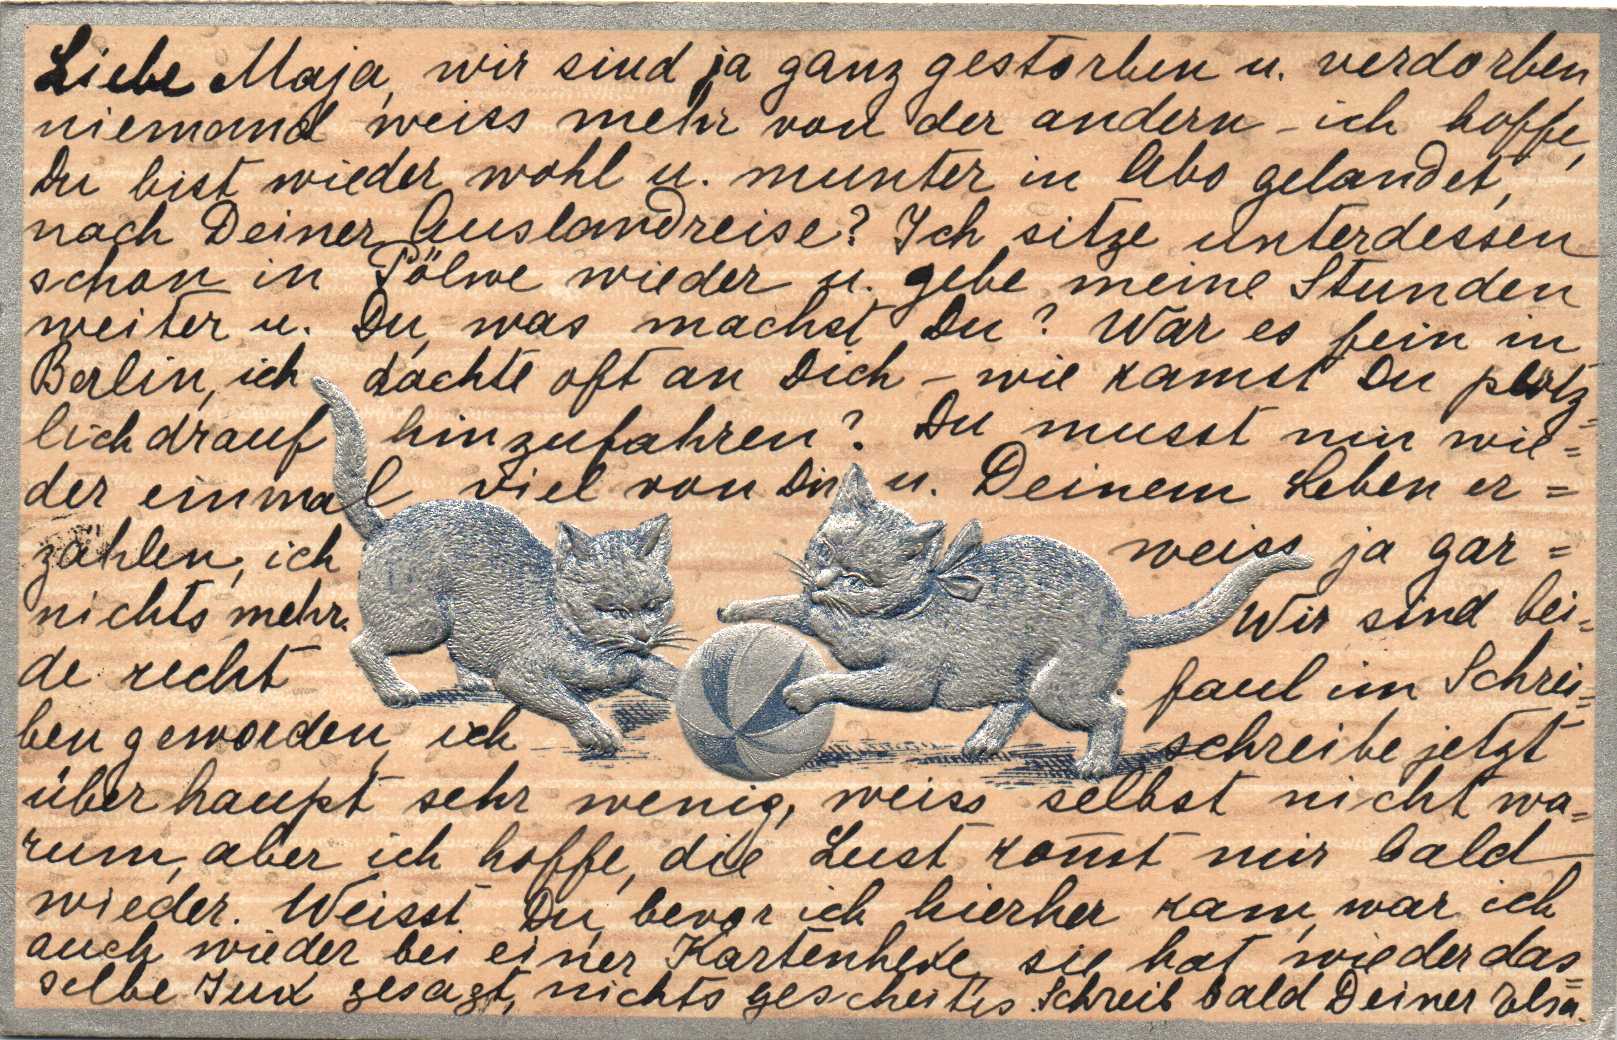 Liebe Maja, wir sind ja ganz gestorben u. verdorben
niemand weiss mehr von der andern – ich hoffe,
Du bist wieder wohl u. munter in Abo gelandet,
nach Deiner Auslandreise? Ich sitze unterdessen
schon in Pölwe wieder u. gebe meine Stunden
weiter u. Du, was machst Du? War es fein in
Berlin, ich dachte oft an Dich – wie kamst Du plötz-
lich drauf hinzufahren? Du musst mir wie=
der einmal viel von Dir u. Deinem Leben er=
zählen, ich weiss ja gar=
nichts mehr. Wir sind bei=
de recht faul im Schrei=
ben geworden, ich schreibe jetzt
überhaupt sehr wenig, weiss selbst nicht wa=
rum, aber ich hoffe, die Lust kom̅t mir bald
wieder. Weisst Du, bevor ich hierher kam, war ich
auch wieder bei einer Kartenhexe, sie hat wieder das=
selbe Jux gesagt, nichts gescheites. Schreib bald Deiner Elsa.